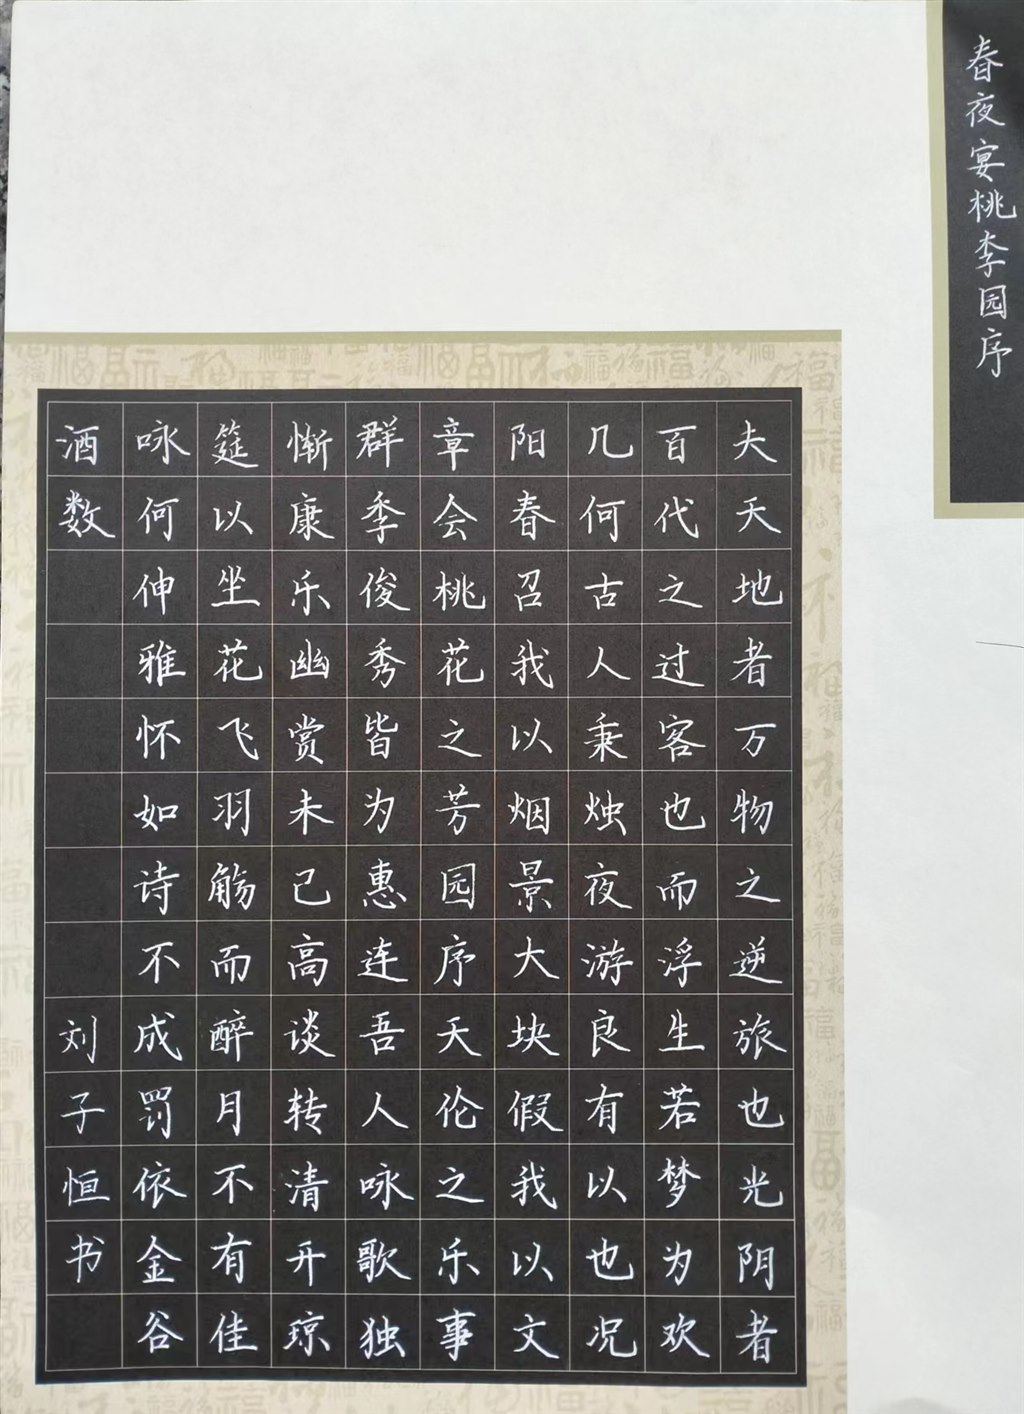 春夜宴桃李园序
夫天地者万物之逆旅也光阴者
百代之过客也而浮生若梦为欢
几何古人秉烛夜游良有以也况
阳春召我以烟景大块假我以文
章会桃花之芳园序天伦之乐事
群季俊秀皆为惠连吾人咏歌独
惭康乐幽赏未已高谈转清开琼
筵以坐花飞羽觞而醉月不有佳
咏何伸雅怀如诗不成罚依金谷
酒数
刘子恒书